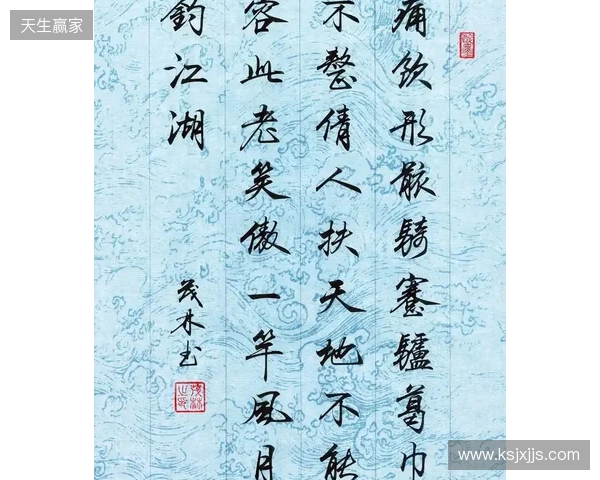 天生赢家
痛飲形骸騎蹇驢葛巾
不整倩人扶天地不能
容此老笑傲一竿風月
釣江湖
茂林书
www.ksjxjjs.com